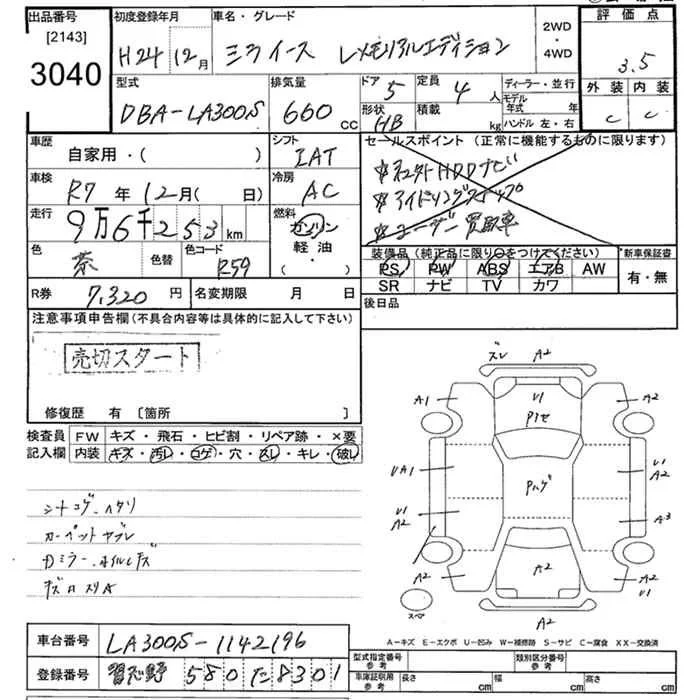 出品番号
[2143]
3040
初度登録年月
H24年12月
車名・グレード
ミライース Lメモリアルエディション
2WD
・
4WD
評価点
3.5
外装 内装
C C
型式
DBA-LA300S
排気量
660 cc
ドア
5
定員
4人
形状
HB
積載
kg
ディーラー・並行
モデル年式 年
ハンドル 左・右
車歴
自家用・( )
シフト
IAT
セールスポイント (正常に機能するものに限ります)
*社外HDDナビ
*アイドリングストップ
*ユーザー買取車
車検
R7年12月( 日)
冷房
AC
走行
9万6千253km
燃料
ガソリン
軽油・
( )
色
茶
色替
色コード
R59
装備品 (純正品に限り○をつけてください)
PS PW ABS エアB AW
SR ナビ TV カワ
新車保証書
有・無
R券
7,320円
名変期限 月 日
後日品
注意事項申告欄(不具合内容等は具体的に記入して下さい)
売切スタート
修復歴 有 [箇所 ]
検査員記入欄
FW キズ・飛石・ヒビ割・リペア跡・×要
内装 キズ・汚レ・コゲ・穴・スレ・キレ・破レ
シートコゲ.ヘタリ
カーペットヤブレ
ズレ A2
A1 U1 A2
Pワセ
UA1 Pハゲ U1 A2
U1 A2 A3
A2 A2 A2 U1
スペア
A2
A-キズ E-エクボ U-凹み W-補修跡 S-サビ C-腐食 XX-交換済
車台番号
LA300S-1142196
登録番号
習志野 580 た 8301
型式指定番号 参考
類別区分番号 参考
車庫証明用 参考
長さ cm
幅 cm
高さ cm